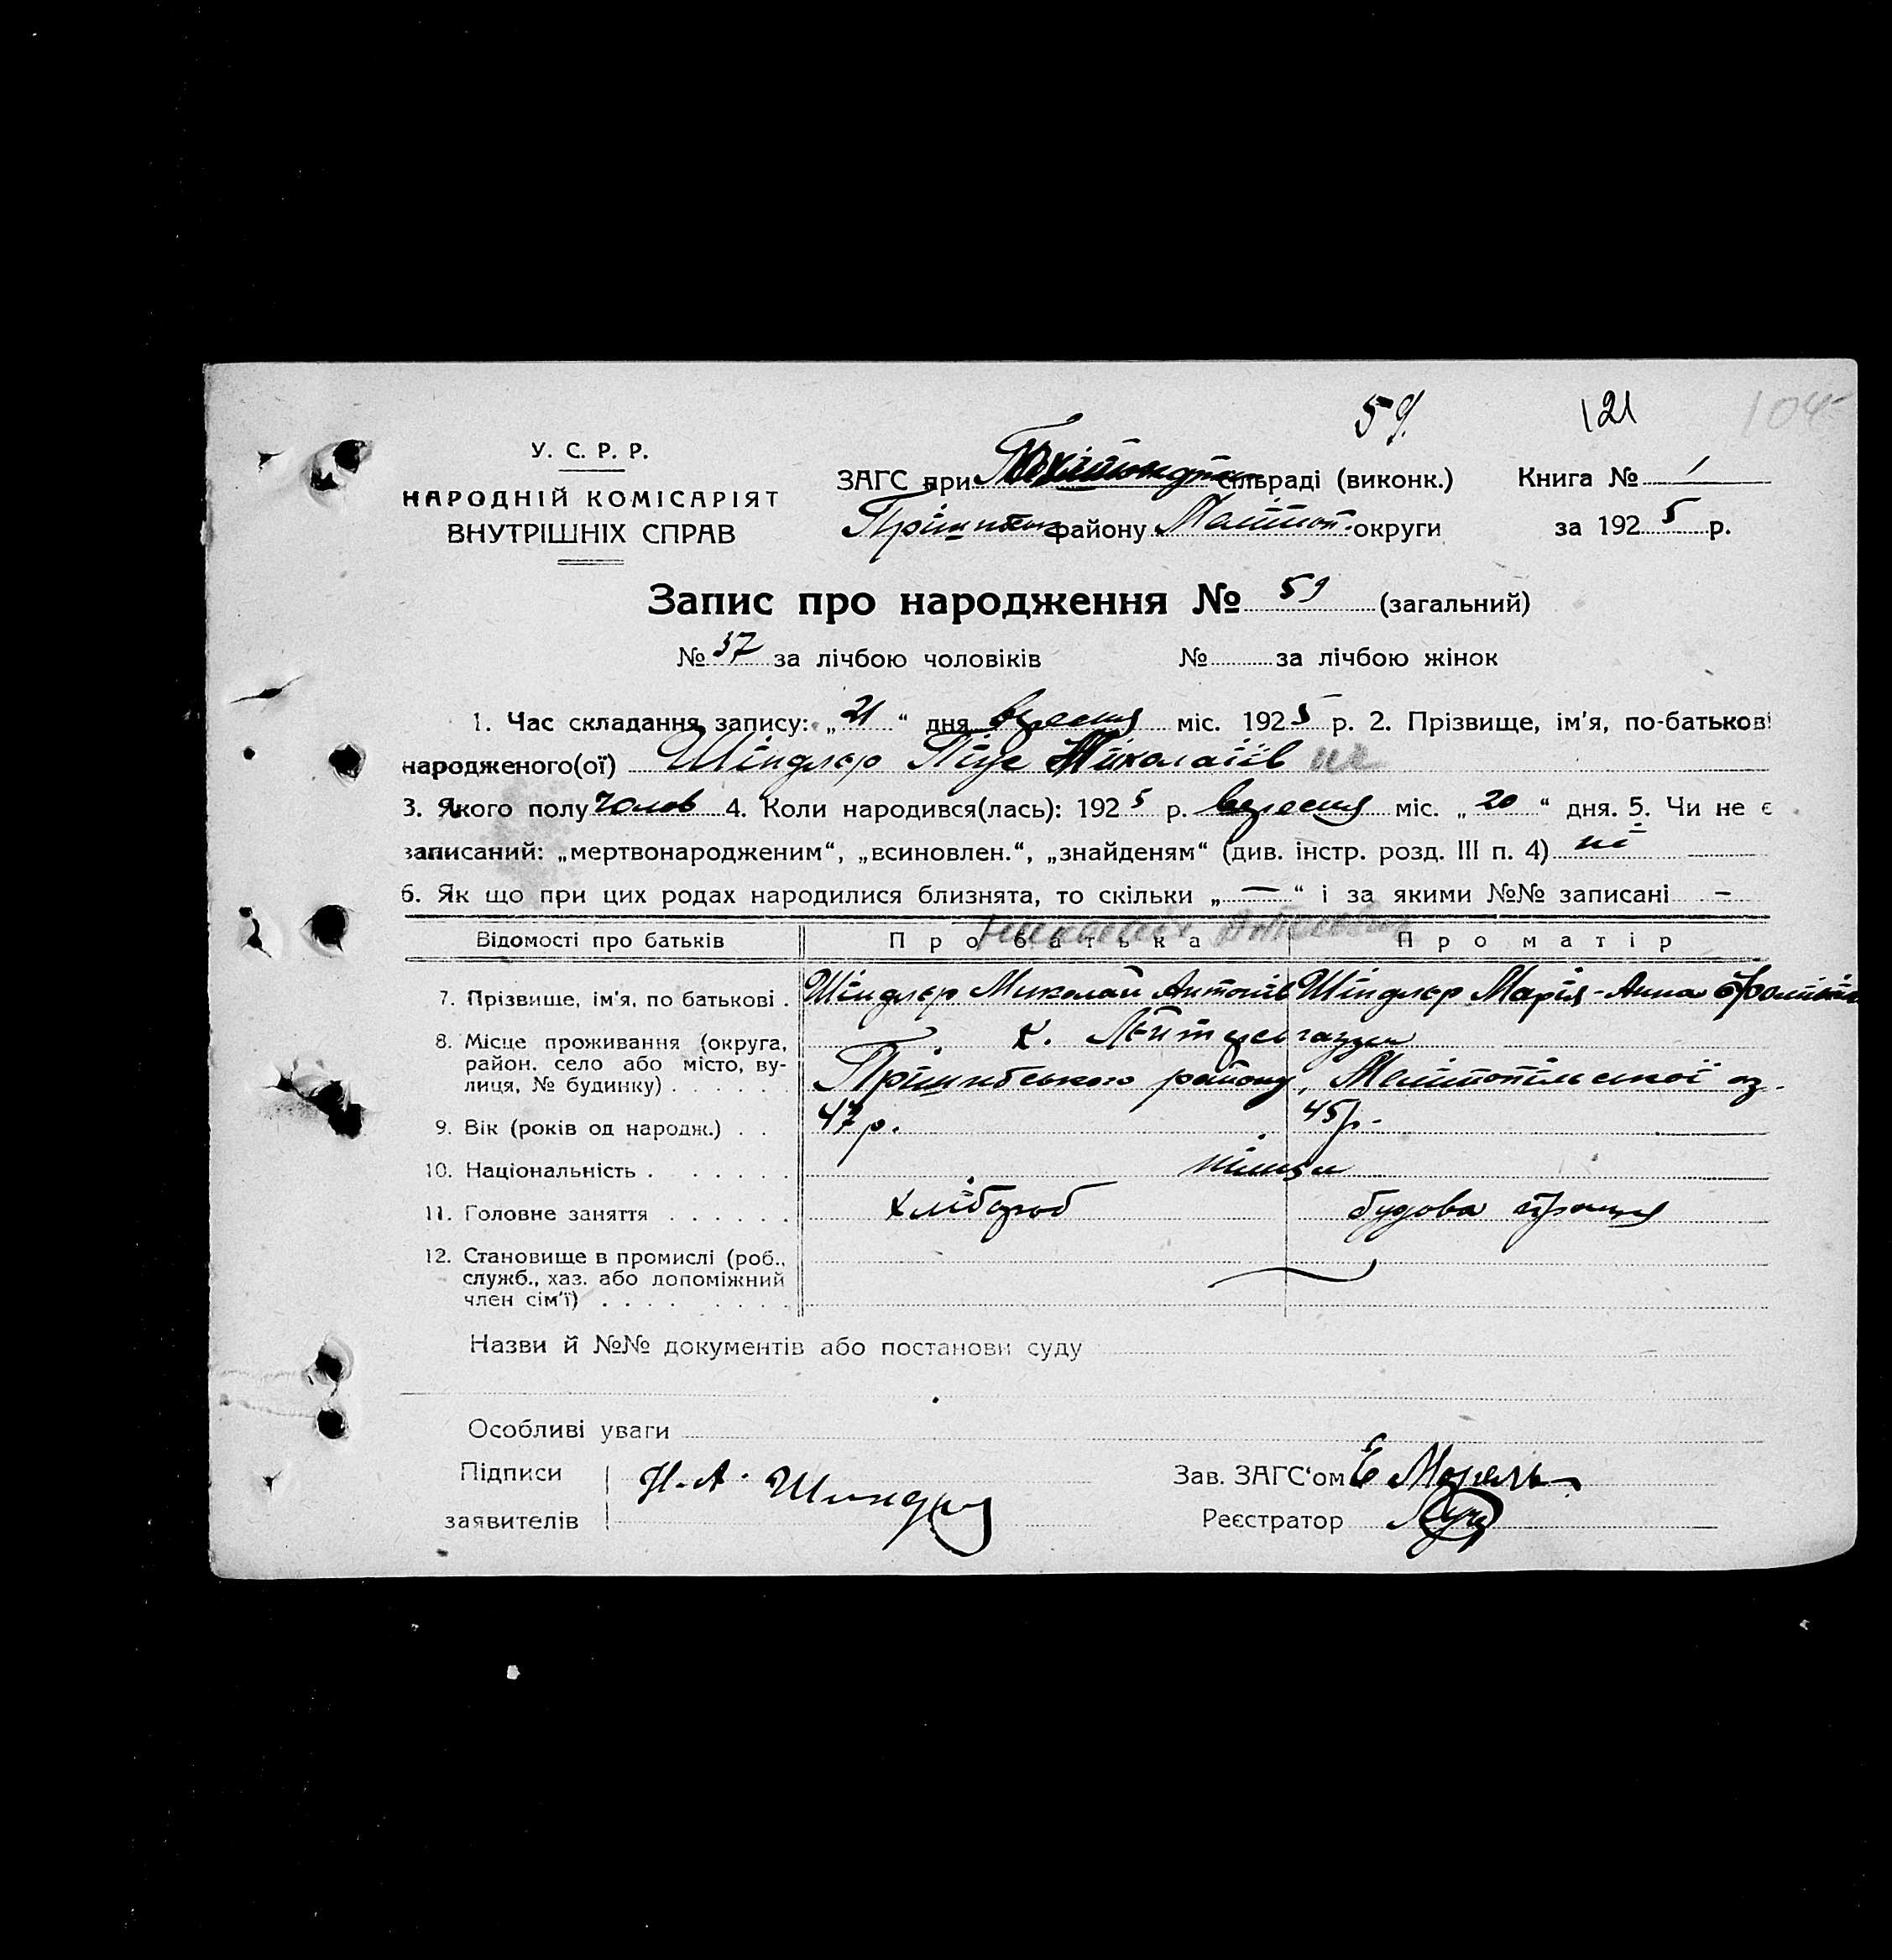 59. 121 104
У. С. Р. Р.
НАРОДНІЙ КОМІСАРІЯТ
ВНУТРІШНІХ СПРАВ
ЗАГС при сільраді (виконк.) Книга № 1
Пришибськ району Меліт. округи за 1925 р.
Запис про народження № 59 (загальний)
№ 37 за лічбою чоловіків № за лічбою жінок
1. Час складання запису: „21“ дня вересня міс. 1925 р. 2. Прізвище, ім'я, по-батькові
народженого(ої) Шіндлєр Піус Миколаїв
3. Якого полу Чолов 4. Коли народився(лась): 1925 р. вересня міс. „20“ дня. 5. Чи не є
записаний: „мертвонародженим“, „всиновлен.“, „знайденям“ (див. інстр. розд. III п. 4) ні
6. Як що при цих родах народилися близнята, то скільки „—“ і за якими №№ записані —
Відомості про батьків Про батька Про матір
7. Прізвище, ім'я, по батькові . Шіндлєр Миколай Антонів Шіндлєр Марія-Анна
8. Місце проживання (округа, район, село або місто, вулиця, № будинку) . . . . . к. Лейтерсгаузен
Пришибського району, Мелітопільської ок.
9. Вік (років од народж.) . . 47 р. 45 р.
10. Національність . . . . . . німці
11. Головне заняття . . . . . . хлібороб будова праця
12. Становище в промислі (роб.,
служб., хаз. або допоміжний
член сім'ї) . . . . . . . .
Назви й №№ документів або постанови суду
Особливі уваги
Підписи Н. А. Шиндлер Зав. ЗАГС'ом Е Морель
заявителів Реєстратор